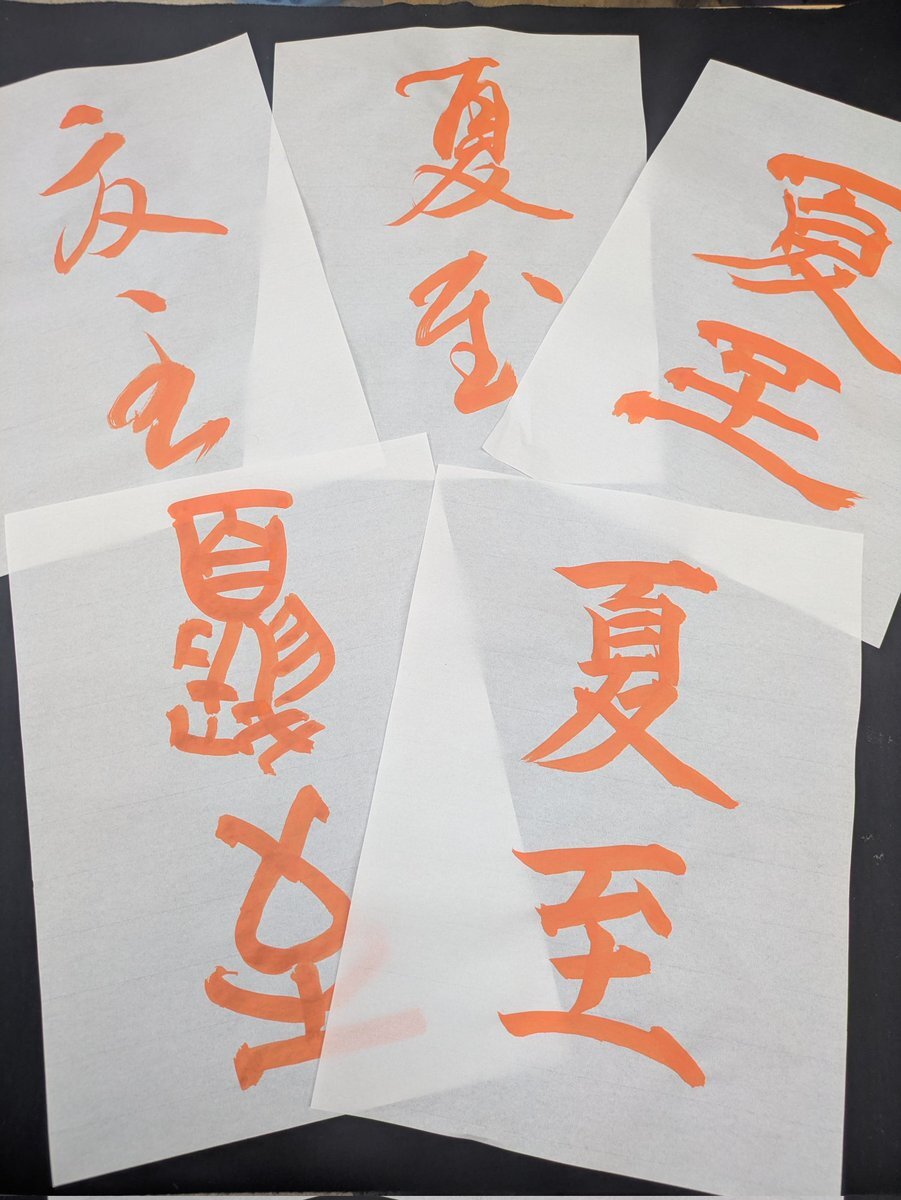 夏至
夏至
夏至
夏至
夏至